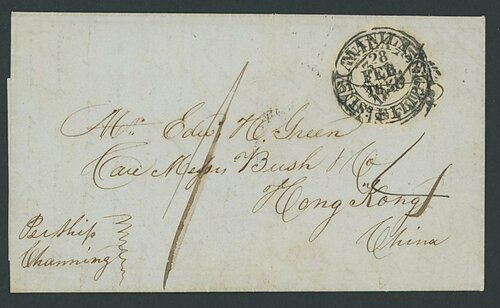 MANILA
28
FEB
Mr. Edw. H. Green
Care Messrs Bush & Co
Hong Kong
China
Per Ship
Channing